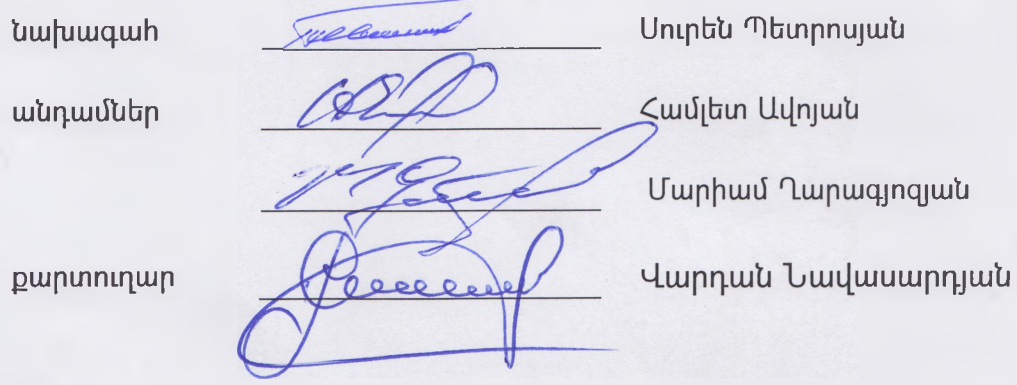 նախագահ Սուրեն Պետրոսյան
անդամներ Համլետ Ավոյան
Մարիամ Ղարագյոզյան
քարտուղար Վարդան Նավասարդյան